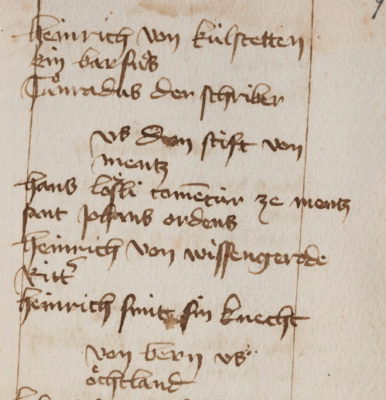 heinrich von külstetten
ein barfuͦs
Cuͦnradus der schriber
vs dem stift von
mentz
hans lösli comētúr ze mentz
sant johans ordens
heinrich von wissengerode
Ritt
heinrich smit sin knecht
von bern vs
öchtland